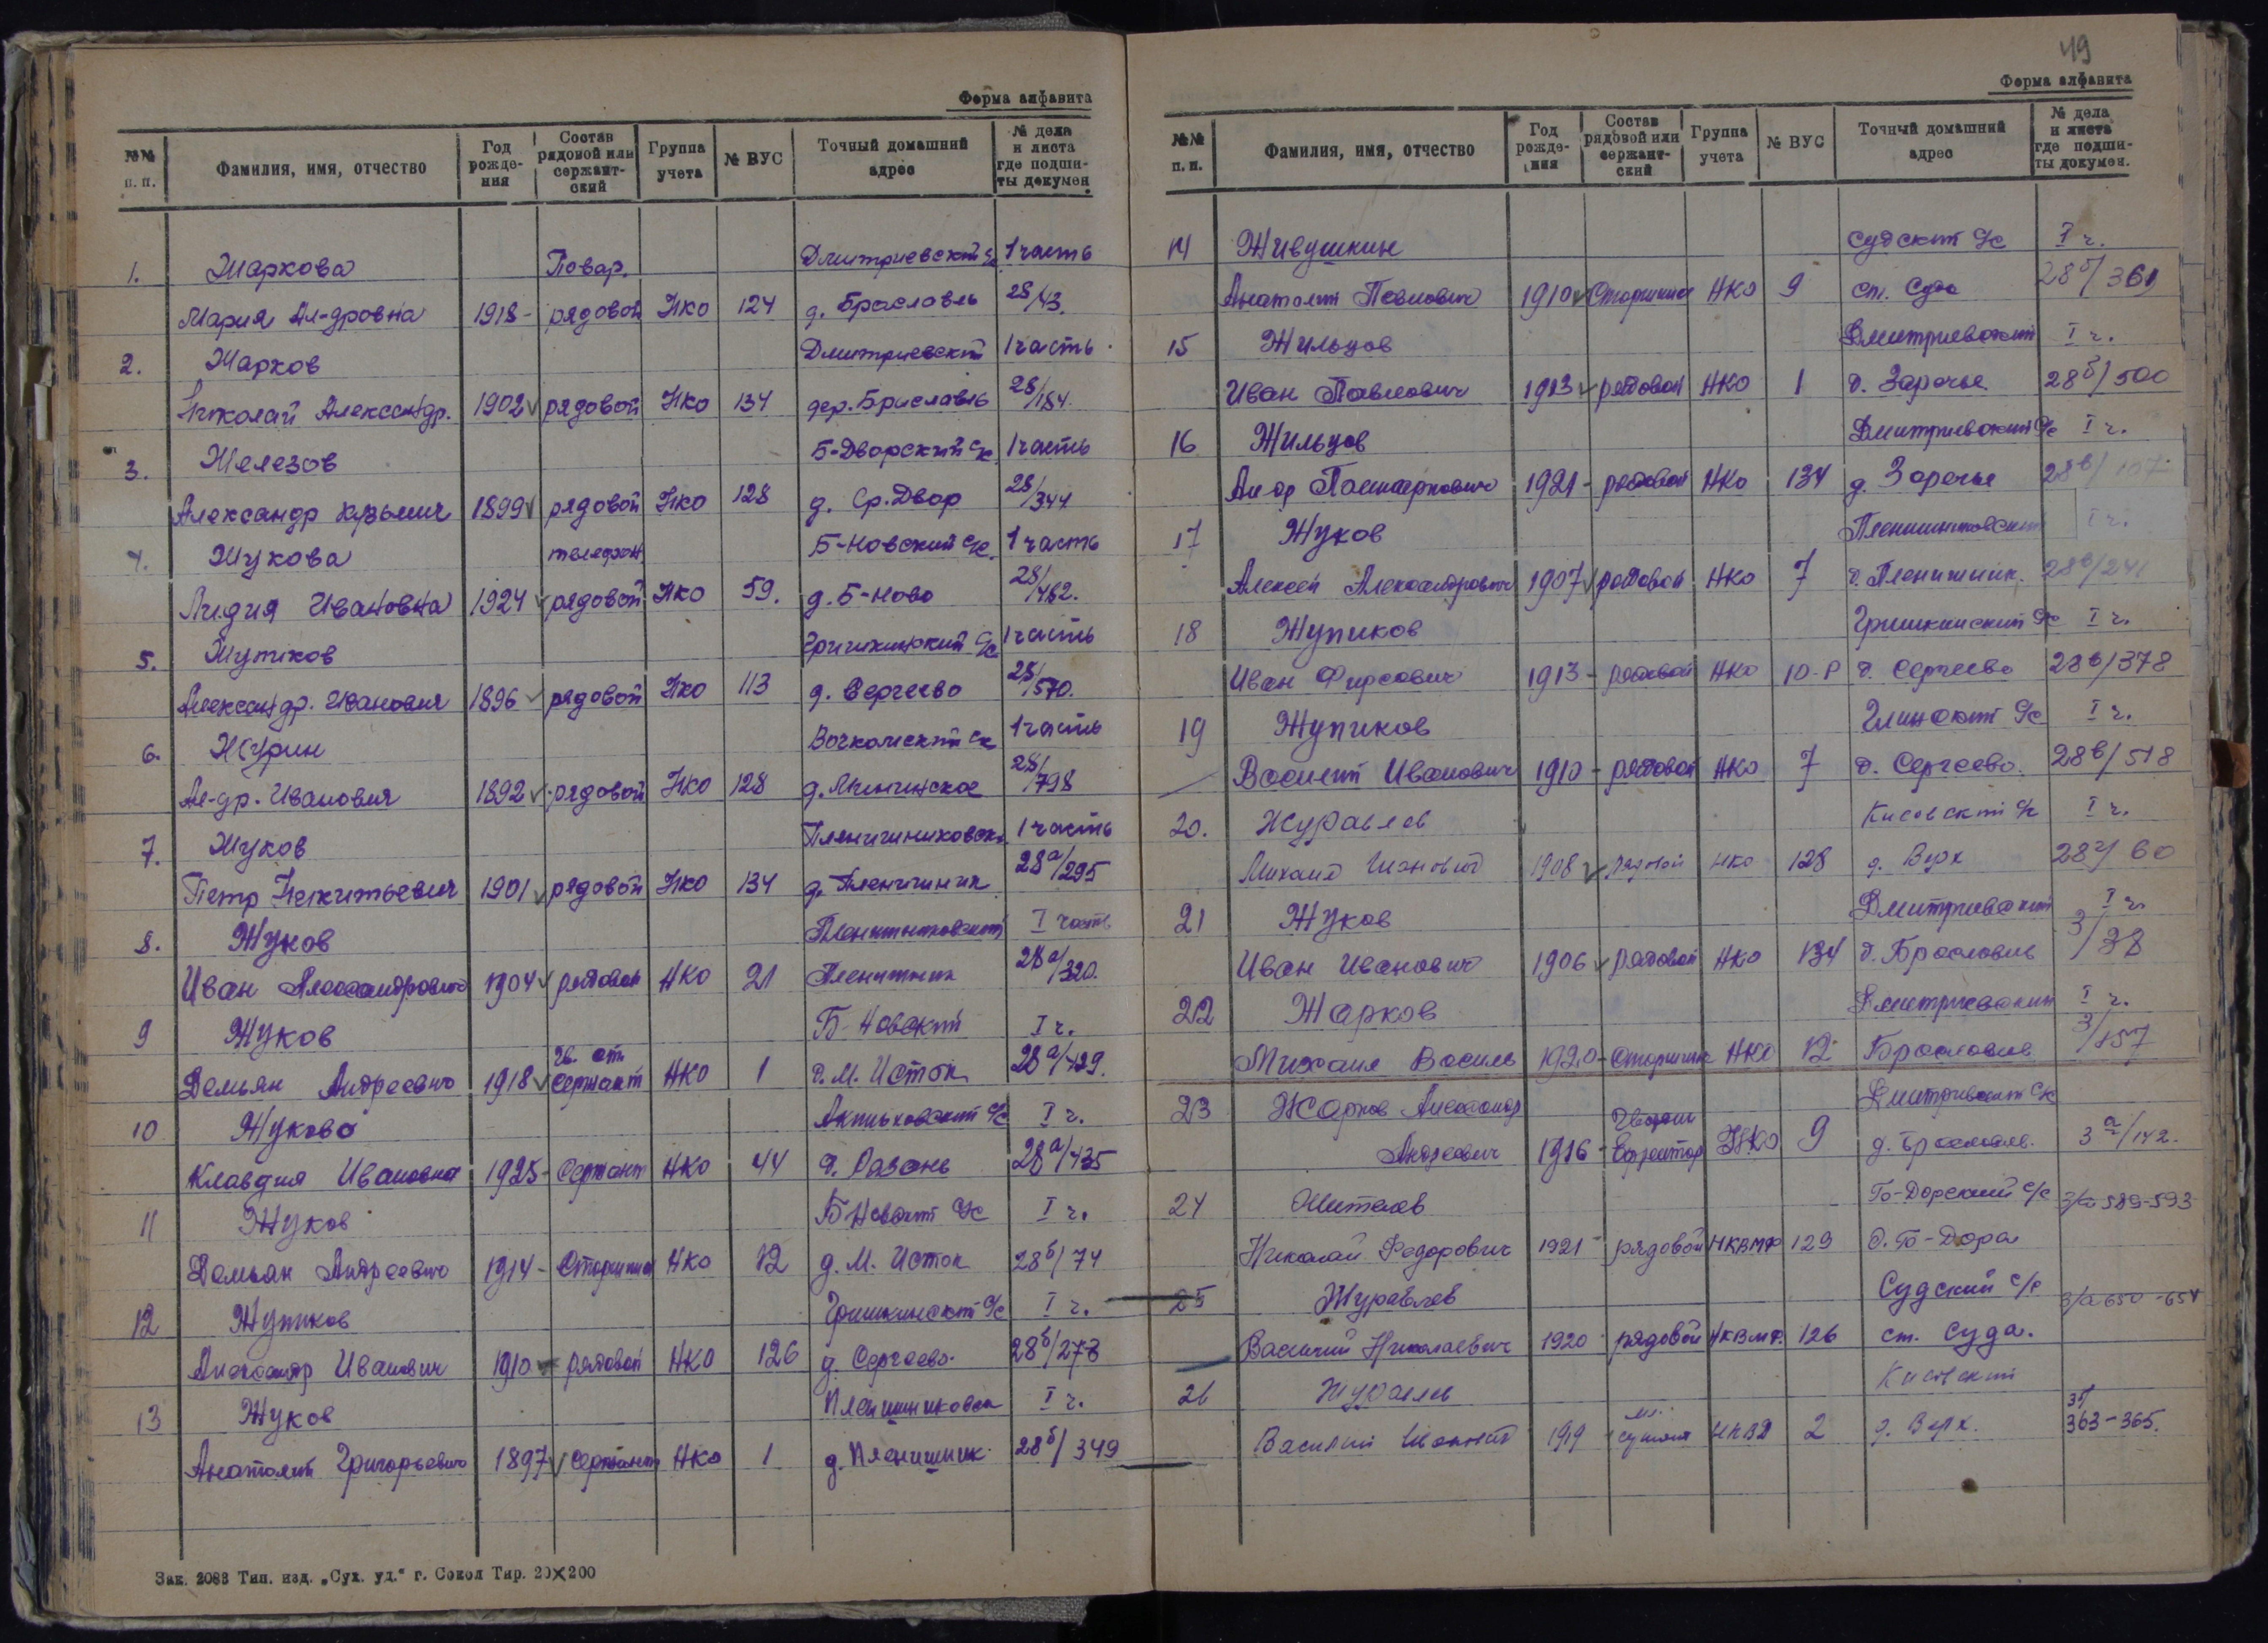 Форма алфавита
№№ п. п. Фамилия, имя, отчество Год рожде-ния Состав рядовой или сержант-ский Группа учета № ВУС Точный домашний адрес № дела и листа где подши-ты докумен
1. Жаркова Повар. Дмитриевский с/с 1 часть
Мария Ал-дровна 1918 - рядовой НКО 124 д. Браславль 28/43.
2. Жарков Дмитриевский 1 часть
Николай Александр. 1902 рядовой НКО 134 дер. Браславль 28/184.
3. Железов Б-Дворский с/с 1 часть
Александр Кузьмич 1899 рядовой НКО 128 д. Ср. Двор 28/344
4. Жукова телефон Б-Новский с/с. 1 часть
Лидия Ивановна 1924 рядовой НКО 59. д. Б-Ново 28/482.
5. Жупиков с/с 1 часть
Александр. Иванович 1896 рядовой НКО 113 д. Сергеево 28/570.
6. Журин 1 часть
Ал-др. Иванович 1892 рядовой НКО 128 д. 28/798
7. Жуков 1 часть
Петр Никитьевич 1901 рядовой НКО 134 д. Пленишник 28а/295
8. Жуков I часть
Иван Александрович 1904 рядовой НКО 21 Пленишник 28а/320.
9 Жуков Б-Новский I ч.
Гв. ст.
Демьян Андреевич 1918 сержант НКО 1 д. М. Исток 28а/429.
10 Жукова с/с I ч.
Клавдия Ивановна 1925 - Сержант НКО 44 д. 28а/435
11 Жуков Б Новский с/с I ч.
Демьян Андреевич 1914 - Старшина НКО 12 д. М. Исток 28б/74
12 Жупиков Гришкинский с/с I ч.
Александр Иванович 1910 рядовой НКО 126 д. Сергеево. 28б/278
13 Жуков Пленишниковск I ч.
Анатолий Григорьевич 1897 Сержант НКО 1 д. Пленишник. 28б/349
Зак. 2083 Тип. изд. „Сух. уд.“ г. Сокол Тир. 20×200
49
Форма алфавита
№№ п. п. Фамилия, имя, отчество Год рожде-ния Состав рядовой или сержант-ский Группа учета № ВУС Точный домашний адрес № дела и листа где подши-ты докумен.
14 Живушкин Судский с/с I ч.
Анатолий Павлович 1910 Старшина НКО 9 ст. Суда 28б/361
15 Жильцов Дмитриевский I ч.
Иван Павлович 1913 рядовой НКО 1 д. Заречье 28б/500
16 Жильцов Дмитриевский с/с I ч.
Ал-др Поликарпович 1921 - рядовой НКО 134 д. Заречье 28в/107
17 Жуков Пленишниковский I ч.
Алексей Александрович 1907 рядовой НКО 7 д. Пленишник. 28в/241
18 Жупиков Гришкинский с/с I ч.
Иван Фирсович 1913 - рядовой НКО 10-Р д. Сергеево 28в/378
19 Жупиков с/с I ч.
Василий Иванович 1910 - рядовой НКО 7 д. Сергеево. 28в/518
20. Журавлев Кисовский с/с I ч.
Михаил 1908 рядовой НКО 128 д. Верх 28г/60
21 Жуков Дмитриевский I ч.
Иван Иванович 1906 рядовой НКО 134 д. Браславль 3/38
22 Жарков Дмитриевский I ч.
Михаил Василь 1920 - Старшина НКО 12 Брославль 3/157
23 Жарков Александр Дмитриевский с/с
Андреевич 1916 - Ефрейтор НКО 9 д. 3а/142.
24 с/с 3/а 589-593
Николай Федорович 1921 - рядовой НКВМФ 129 д.
25 Журавлев Судский с/с 3/а 650-654
Василий Николаевич 1920 рядовой НКВМФ. 126 ст. Суда.
26 Журавлев Кисовский
Василий 1919 НКВД 2 д. Верх. 363-365.